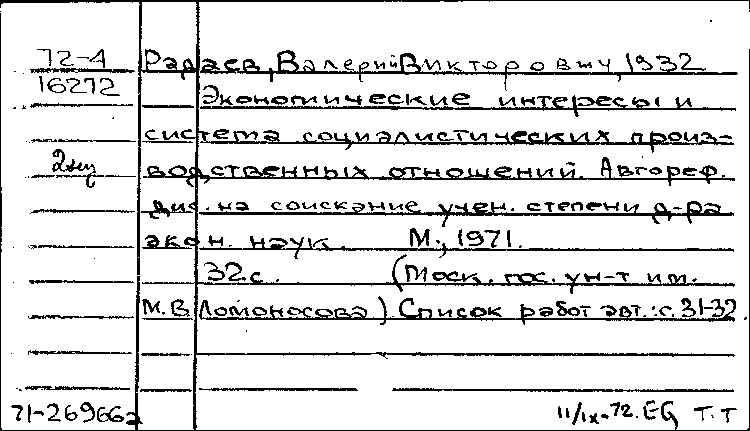 72-4 Радаев, Валерий Викторович, 1932
16272 Экономические интересы и
система социалистических произ-
2 экз водственных отношений. Автореф.
дис. на соискание учен. степени д-ра
экон. наук. М., 1971.
32 с. (Моск. гос. ун-т им.
М.В. Ломоносова) Список работ авт.: с. 31-32.
71-26966а 11/IX-72. EG T.T